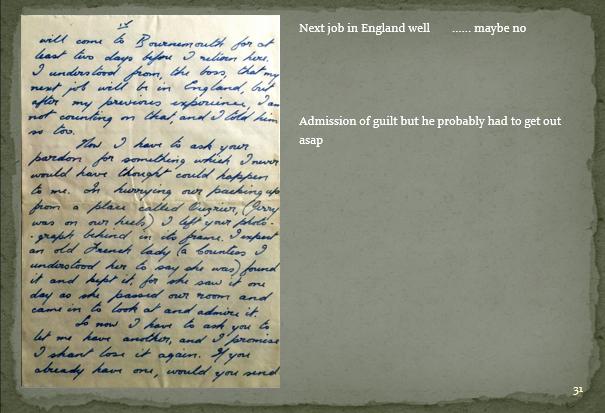 will come to Bournemouth for at
least two days before I return here.
I understood from the boss, that my
next job will be in England, but
after my previous experience, I am
not counting on that, and I told him
so too.
Now I have to ask your
pardon for something which I never
would have thought could happen
to me. In hurrying our packing up
from a place called (Jerry
was on our heels) I left your photo-
-graph behind in its frame. I expect
an old French lady (a Countess I
understood her to say she was) found
it and kept it, for she saw it one
day as she passed our room and
came in to look at and admire it.
So now I have to ask you to
let me have another, and I promise
I shant lose it again. If you
already have one, would you send
Next job in England well ...... maybe no
Admission of guilt but he probably had to get out
asap
31